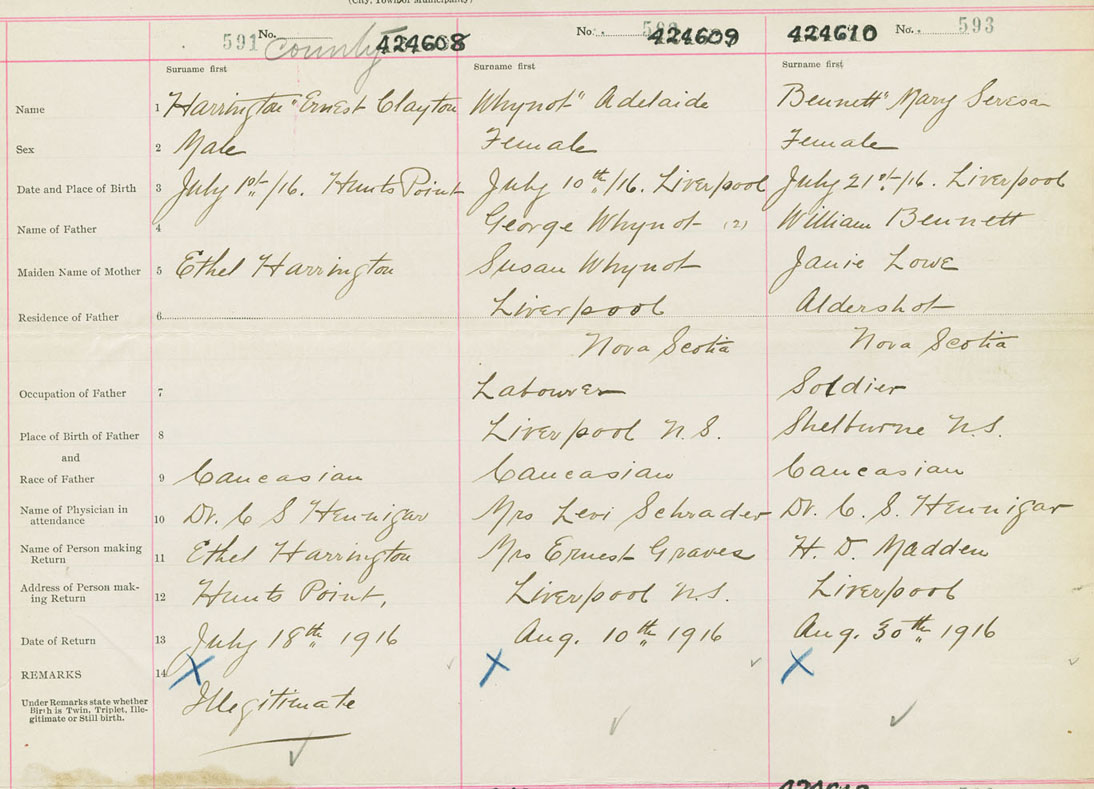 (City, Town or Municipality)
591 No. County 424608 No. 592 424609 424610 No. 593
Surname first Surname first Surname first
Name 1 Harrington" Ernest Clayton Whynot" Adelaide Bennett" Mary Seresa
Sex 2 Male Female Female
Date and Place of Birth 3 July 1st/16. Hunts Point July 10th/16. Liverpool July 21st/16. Liverpool
Name of Father 4 George Whynot (2) William Bennett
Maiden Name of Mother 5 Ethel Harrington Susan Whynot Janie Lowe
Residence of Father 6 Liverpool Aldershot
Nova Scotia Nova Scotia
Occupation of Father 7 Labourer Soldier
Place of Birth of Father 8 Liverpool N.S. Shelburne N.S.
and
Race of Father 9 Caucasian Caucasian Caucasian
Name of Physician in attendance 10 Dr. C S Hennigar Mrs Levi Schrader Dr. C. S. Hennigar
Name of Person making Return 11 Ethel Harrington Mrs Ernest Graves H. D. Madden
Address of Person making Return 12 Hunts Point, Liverpool N.S. Liverpool
Date of Return 13 July 18th 1916 Aug. 10th 1916 Aug. 30th 1916
REMARKS 14 X X X
Under Remarks state whether
Birth is Twin, Triplet, Ille-
gitimate or Still birth.
Illegitimate